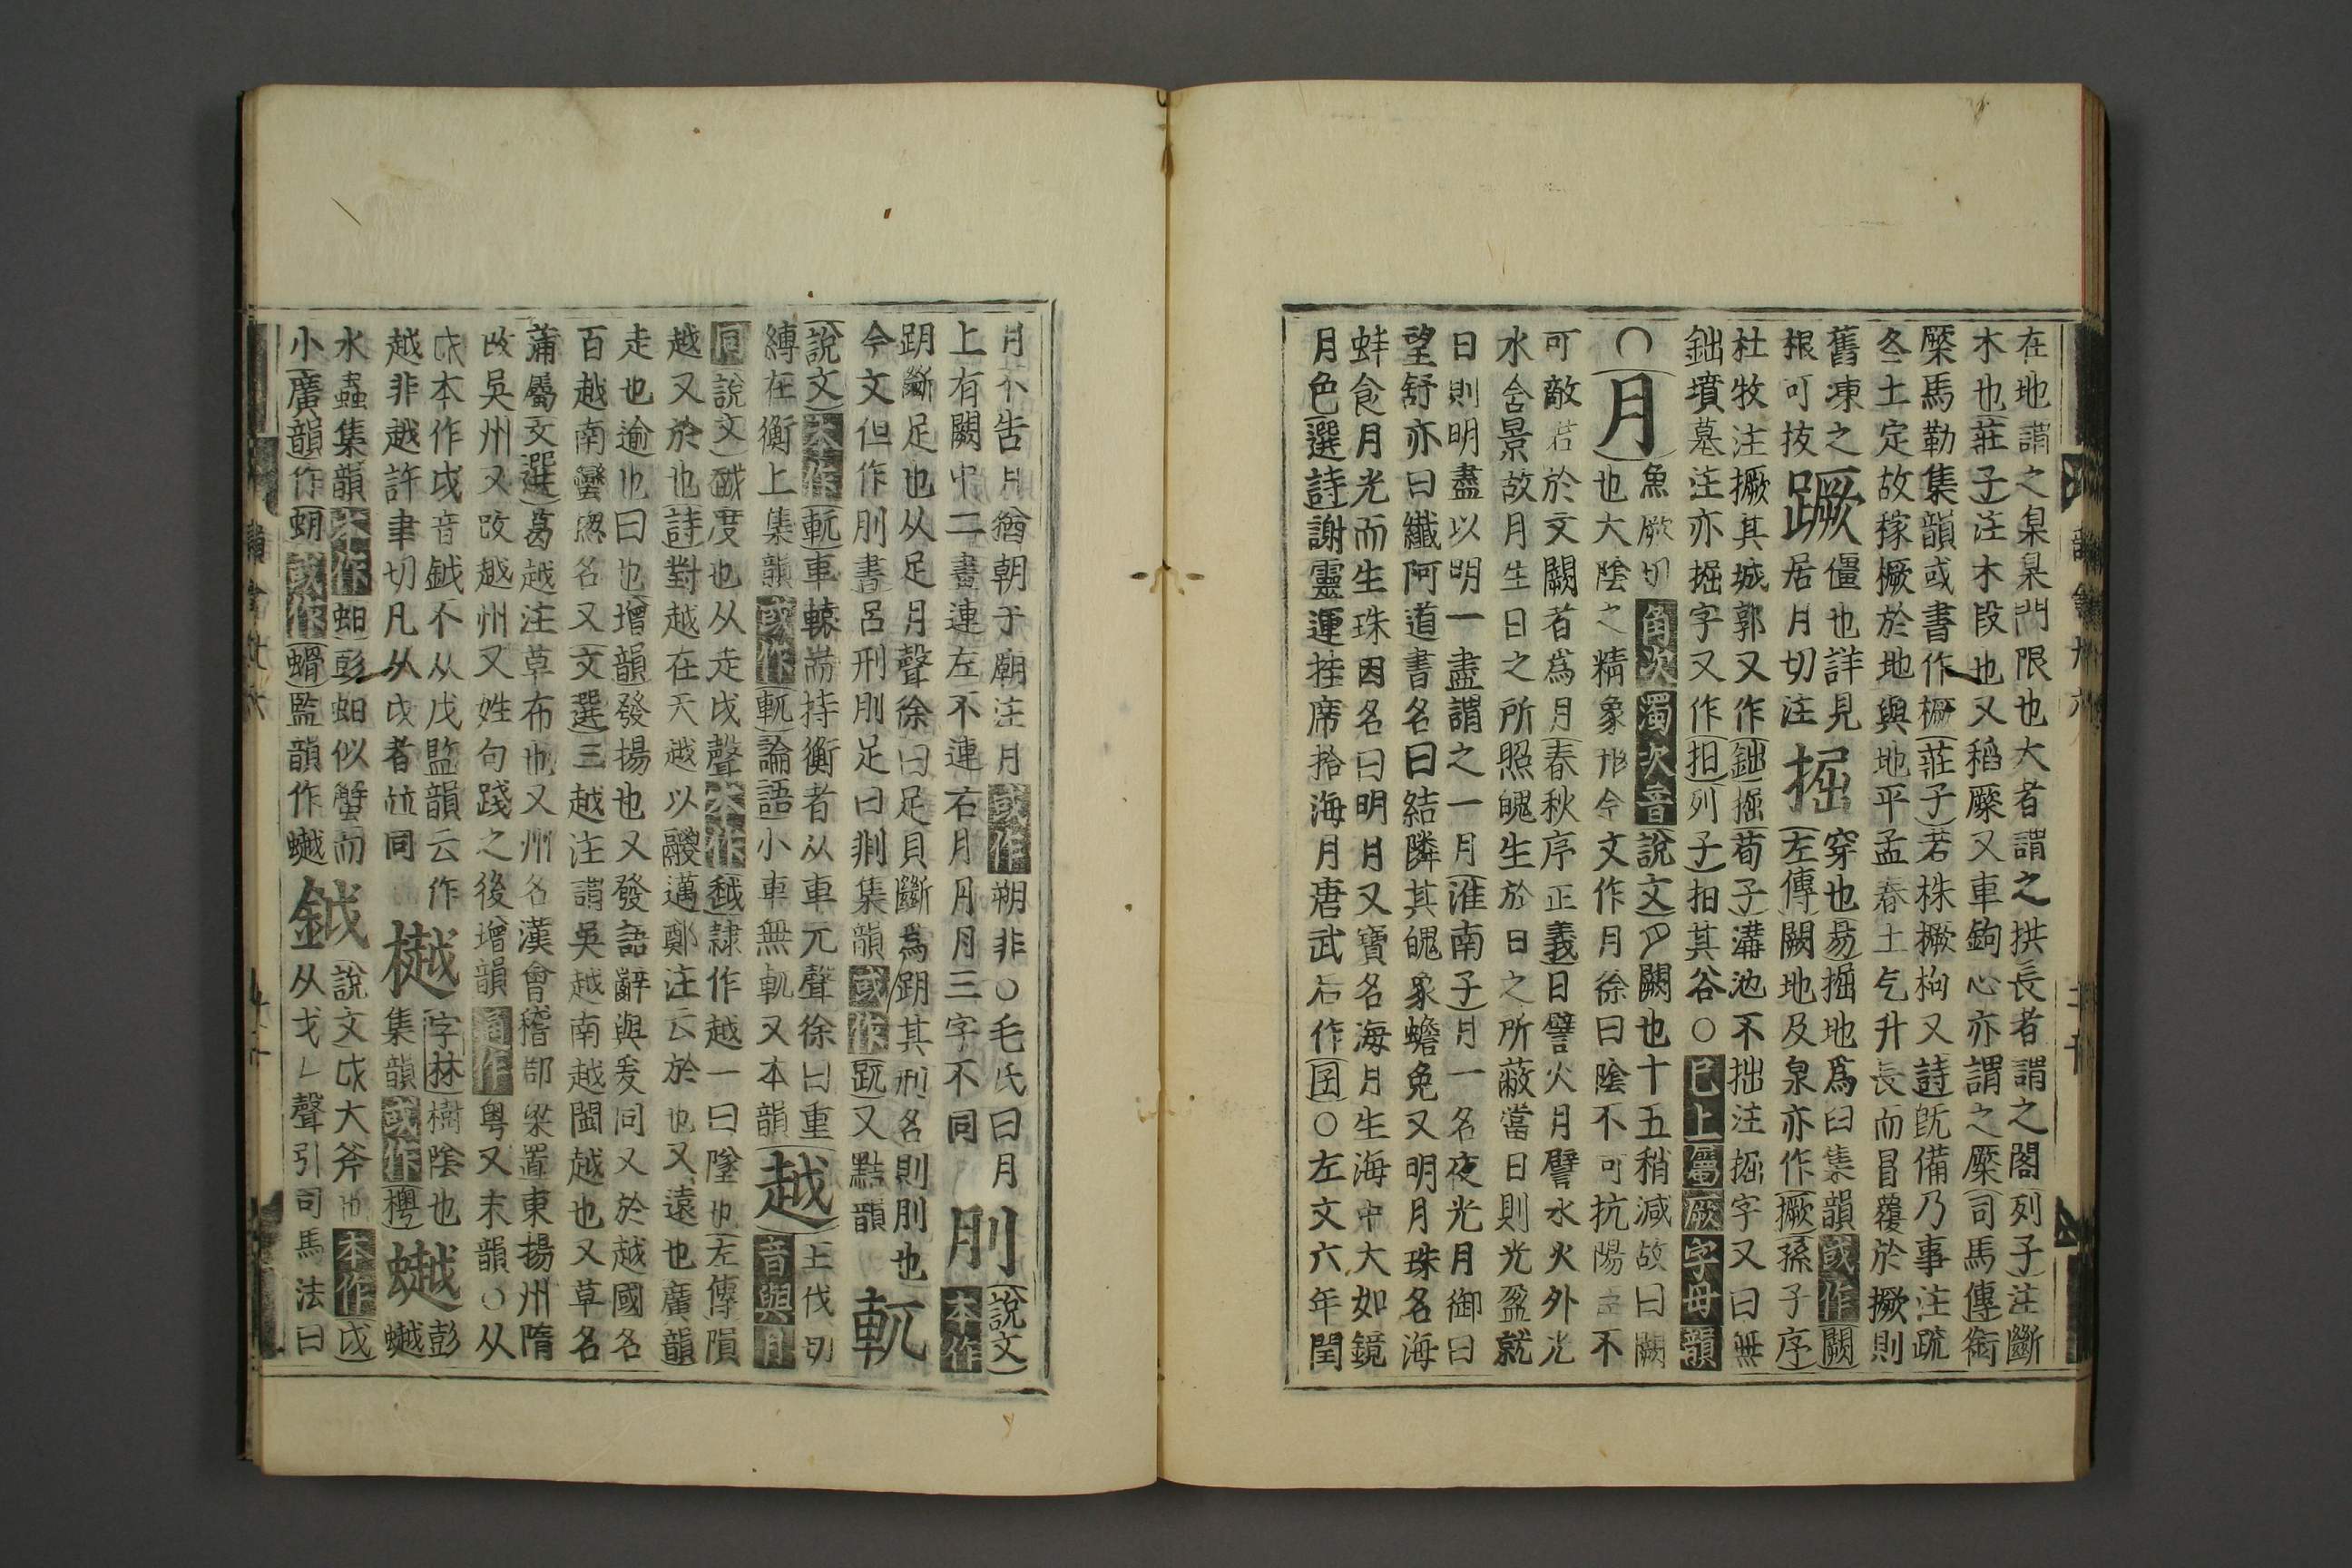 在地謂之臬臬門限也大者謂之拱長者謂之閣列子注斷
木也莊子注木段也又稻橜又車鉤心亦謂之橜司馬傳銜
橜馬勒集韻或書作橛莊子若株橛枸又詩旣備乃事注疏
冬土定故稼橛於地與地平孟春土气升長而冒覆於撅則
舊凍之
根可技蹶僵也詳見
居月切注掘穿也易掘地爲臼集韻或作闕
左傳闕地及泉亦作撅孫子序
杜牧注撅其城郭又作鈯掘荀子溝池不拙注掘字又曰無
鈯墳墓注亦掘字又作抇列子抇其谷○已上屬厥字母韻
○月魚厥切角次濁次音說文闕也十五稍減故曰闕
也大陰之精象形今文作月徐曰陰不可抗陽臣不
可敵君於文闕者爲月春秋序正義日譬火月譬水火外光
水含景故月生日之所照魄生於日之所蔽當日則光盈就
日則明盡以明一盡謂之一月淮南子月一名夜光月御曰
望舒亦曰纖阿道書名曰結隣其魄象蟾兔又明月珠名海
蚌食月光而生珠因名曰明月又寶名海月生海中大如鏡
月色選詩謝靈運挂席拾海月唐武后作囝○左文六年閏
月不告月猶朝于廟注月或作朔非○毛氏曰月
上有闕中二畫連左不連右月⺼月三字不同刖說文本作
跀斷足也从足月聲徐曰足貝斷爲跀其刑名則刖也
今文但作刖書呂刑刖足曰剕集韻或作𧿁又黠韻軏
說文本作軏車轅耑持衡者从車元聲徐曰重
縛在衡上集韻或作軏論語小車無軏又本韻越王伐切音與月
同說文越度也从走戉聲本作越隷作越一曰墜也左傳隕
越又於也詩對越在天越以鬷邁鄭注云於也又遠也廣韻
走也逾也曰也增韻發揚也又發語辭與爰同又於越國名
百越南蠻緫名又文選三越注謂吳越南越閩越也又草名
蒲屬文選葛越注草布也又州名漢會稽郡梁置東揚州隋
改吳州又改越州又姓句踐之後增韻通作粤又末韻○从
戉本作戉音鉞不从戊監韻云作
越非越許聿切凡从戉者竝同樾字林樹陰也
集韻或作樾蟩彭蟩
水蟲集韻本作蚏彭蚏似蟹而
小廣韻作蚏或作蟩監韻作蟩鉞說文戉大斧也本作戉
从戈𠄌聲引司馬法曰